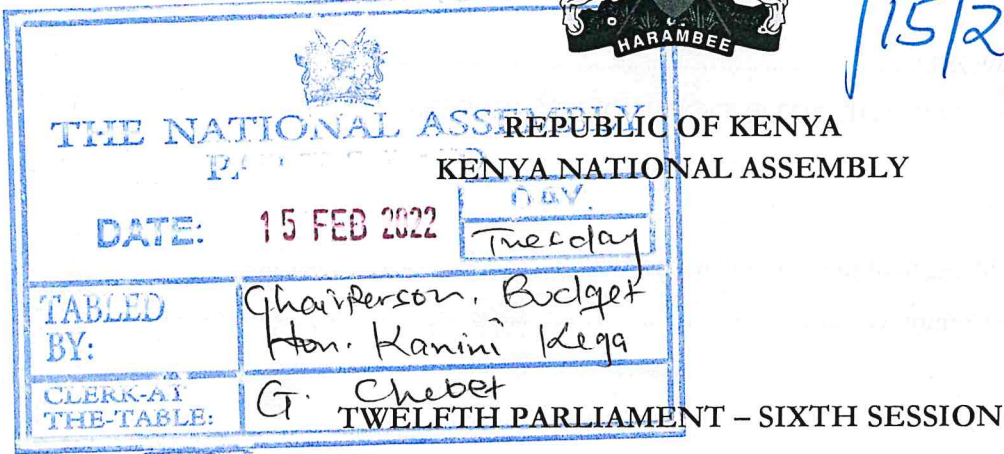 HARAMBEE
15/2
THE NATIONAL ASSEMBLY
REPUBLIC OF KENYA
KENYA NATIONAL ASSEMBLY
DATE: 15 FEB 2022
DAY.
Tuesday
TABLED BY:
Chairperson, Budget
Hon. Kanini Kega
CLERK-AT THE-TABLE:
G. Chebet
TWELFTH PARLIAMENT – SIXTH SESSION